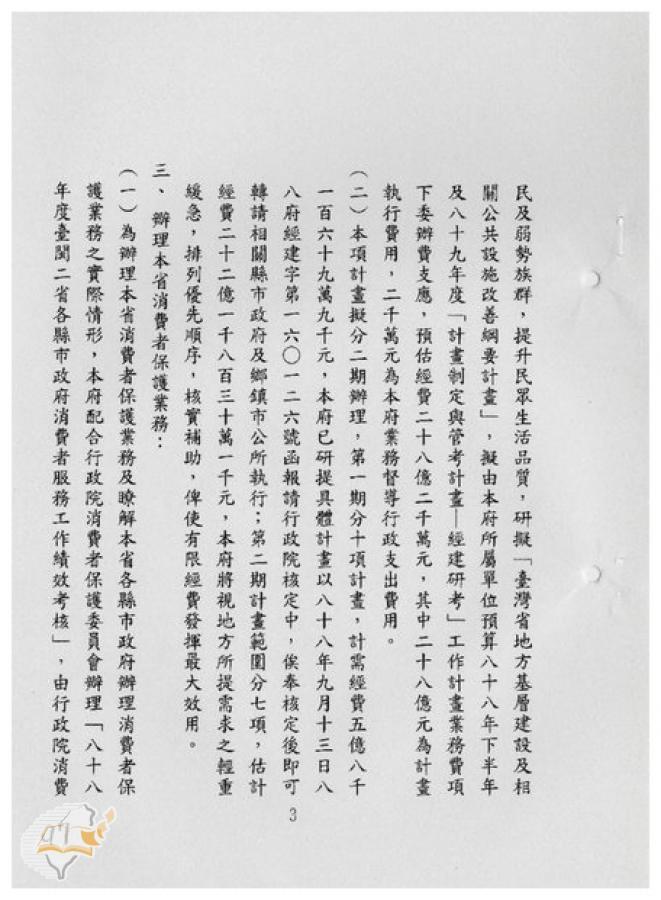 民及弱勢族群，提升民眾生活品質，研擬「臺灣省地方基層建設及相
關公共設施改善綱要計畫」，擬由本府所屬單位預算八十八年下半年
及八十九年度「計畫制定與管考計畫—經建研考」工作計畫業務費項
下委辦費支應，預估經費二十八億二千萬元，其中二十八億元為計畫
執行費用，二千萬元為本府業務督導行政支出費用。
（二）本項計畫擬分二期辦理，第一期分十項計畫，計需經費五億八千
一百六十九萬九千元，本府已研提具體計畫以八十八年九月十三日八
八府經建字第一六〇一二六號函報請行政院核定中，俟奉核定後即可
轉請相關縣市政府及鄉鎮市公所執行；第二期計畫範圍分七項，估計
經費二十二億一千八百三十萬一千元，本府將視地方所提需求之輕重
緩急，排列優先順序，核實補助，俾使有限經費發揮最大效用。
三、辦理本省消費者保護業務：
（一）為辦理本省消費者保護業務及瞭解本省各縣市政府辦理消費者保
護業務之實際情形，本府配合行政院消費者保護委員會辦理「八十八
年度臺閩二省各縣市政府消費者服務工作績效考核」，由行政院消費
3